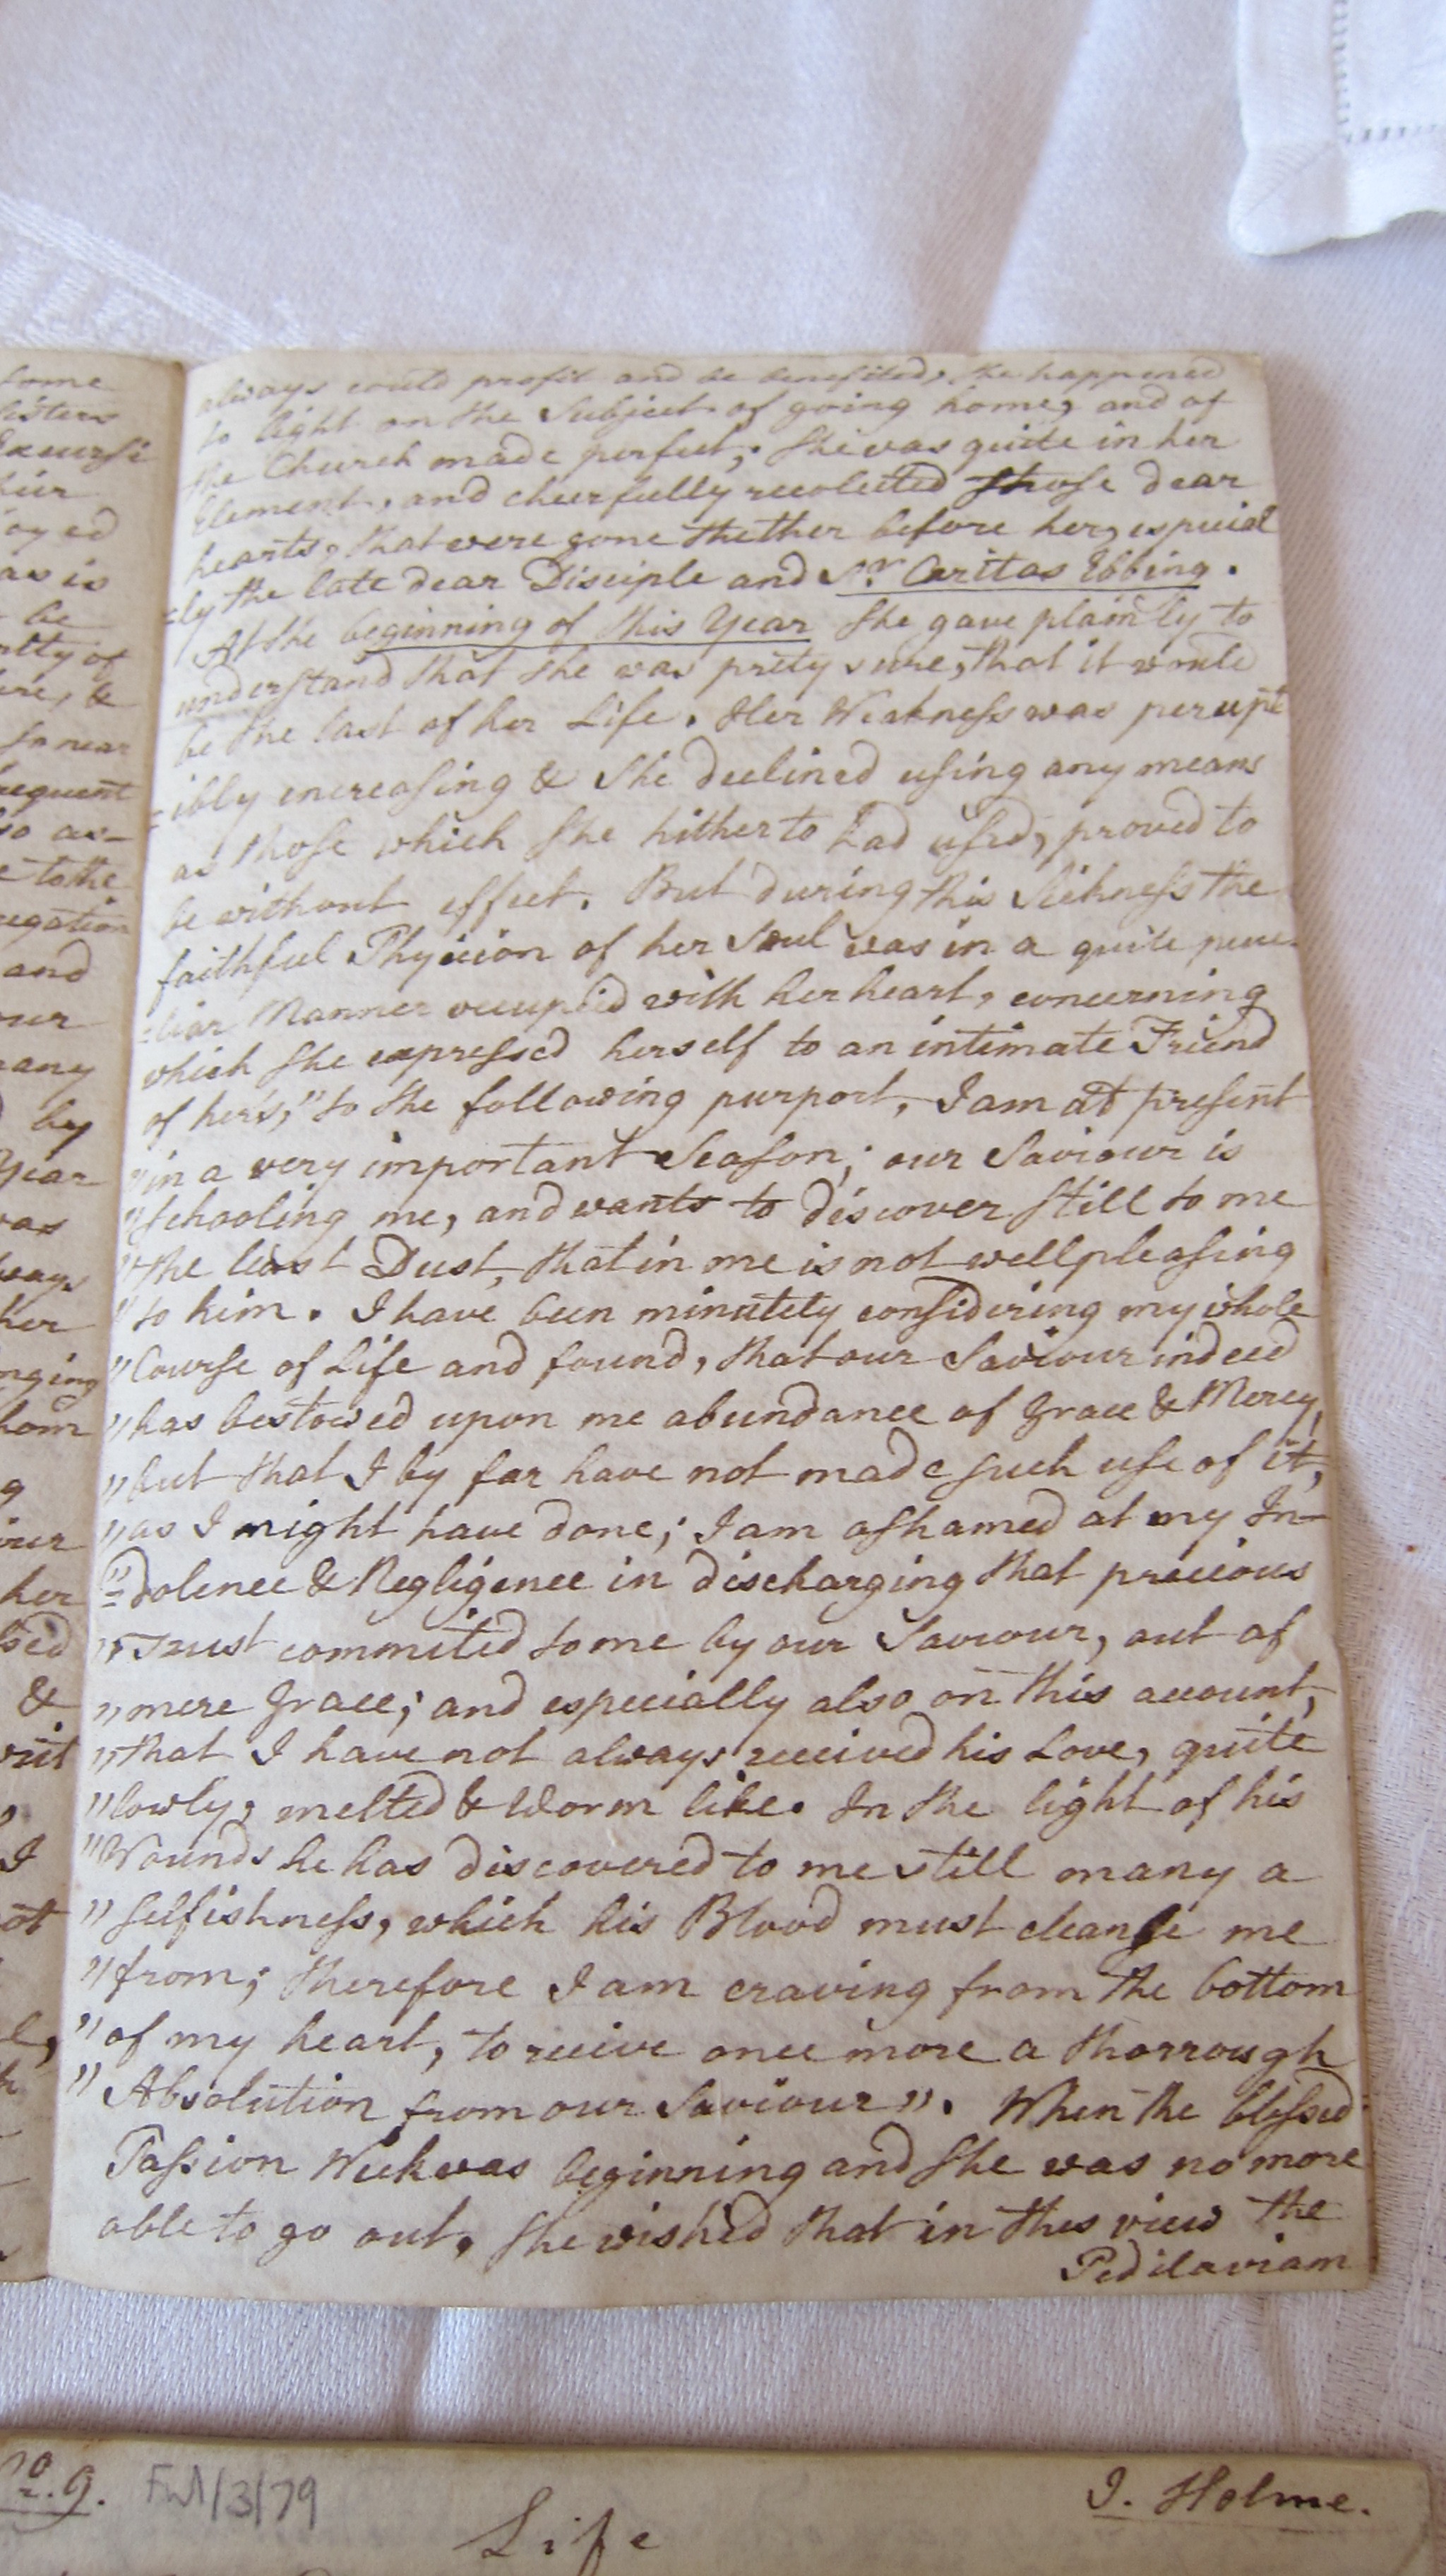 some
sisters
Excursi
oyed
as is
be
&
so near
sequent
so as-
e to the
and
our
many
by
Year
was
ways
her
her
&
I
always could profit and be benefited, she happened
to light on the Subject of going home, and of
the Church made perfect; She was quite in her
Element, and cheerfully recolected those dear
hearts, that were gone thether before her, especial
=ly the late dear Disciple and Sr. Caritas Ebbing.
At the beginning of this Year she gave plainly to
understand that she was prety sure, that it would
be the last of her Life. Her Weakness was percept
=ibly encreasing & She declined using any means
as those which she hitherto had used, proved to
be without effect. But during this Sickness the
faithful Phycion of her Soul was in a quite pecu-
=liar Manner occupied with her heart, concerning
which she expressed herself to an intimate Friend
of her's, "to the following purport, I am at present
"in a very important Season; our Saviour is
"schooling me, and wants to discover still to me
"the least Dust, that in me is not wellpleasing
"to him. I have been minutely considering my whole
"Course of Life and found, that our Saviour indeed
"has bestowed upon me abundance of Grace & Mercy,
"but that I by far have not made such use of it,
"as I might have done; I am ashamed at my In-
"=dolence & Negligence in discharging that precious
"Trust commited to me by our Saviour, out of
"mere Grace; and especially also on this account,
"that I have not always received his Love, quite
"lowly, melted & Worm like. In the light of his
"Wounds he has discovered to me still many a
"Selfishness, which his Blood must cleanse me
"from; therefore I am craving from the bottom
"of my heart, to receive once more a thorrough
"Absolution from our Saviour". When the blessed
Passion Week was beginning and she was no more
able to go out, she wished that in this view the
Pedilaviam
No. 9. FM/3/79
J. Holme.
Life